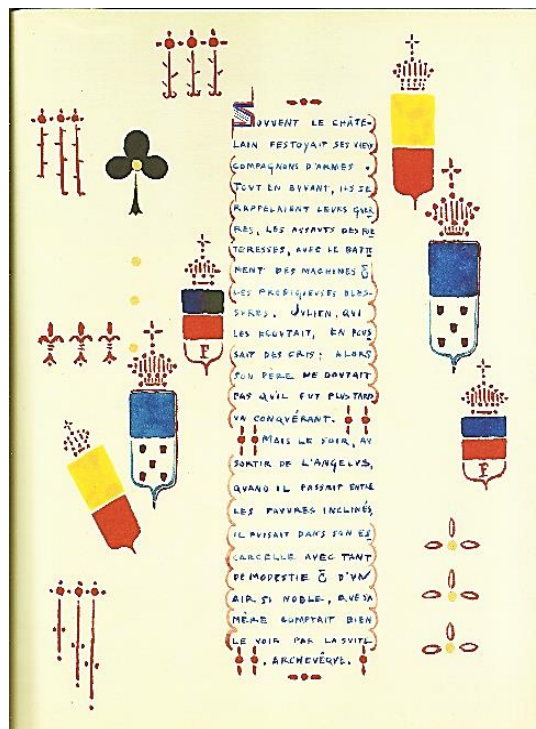 SOUVENT LE CHÂTE-
LAIN FESTOYAIT SES VIEUX
COMPAGNONS D'ARMES.
TOUT EN BVVANT, ILS SE
RAPPELAIENT LEURS GUER
RES, LES ASSAUTS DES FOR
TERESSES, AVEC LE BATTE
MENT DES MACHINES &
LES PRODIGIEUSES BLES-
SVRES. JVLIEN, QVI
LES ECOVTAIT, EN POVS
SAIT DES CRIS; ALORS
SON PÈRE NE DOVTAIT
PAS QV'IL FVT PLVS TARD
VN CONQVÉRANT.
MAIS LE SOIR, AV
SORTIR DE L'ANGELVS,
QVAND IL PASSAIT ENTRE
LES PAVVRES INCLINÉS,
IL PVISAIT DANS SON ES
CARCELLE AVEC TANT
DE MODESTIE & D'VN
AIR SI NOBLE, QVE SA
MÈRE COMPTAIT BIEN
LE VOIR PAR LA SVITE
ARCHEVÊQVE.
F
F